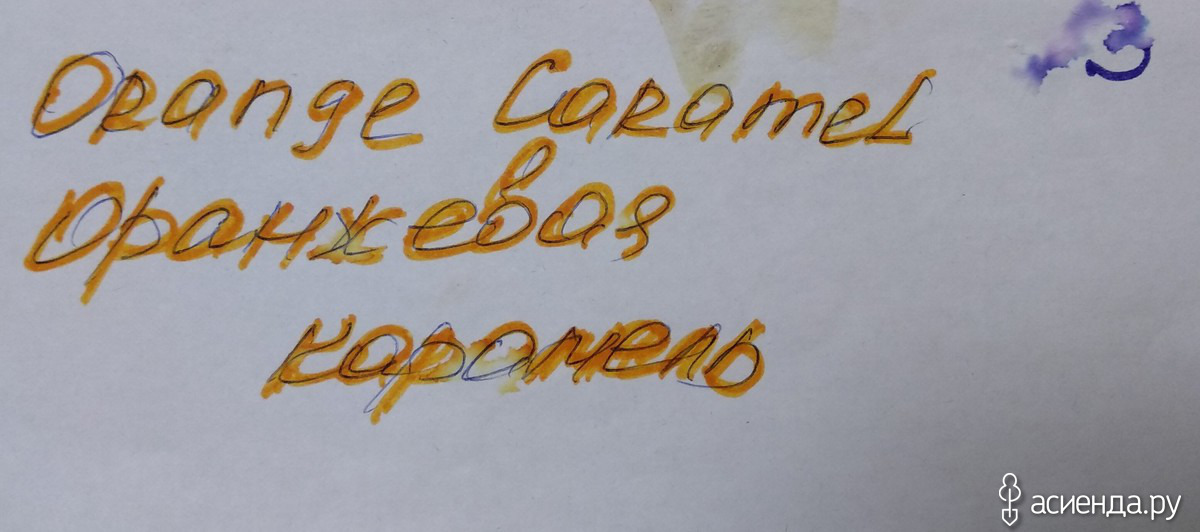 Orange Caramel
3
Оранжевая
карамель
асиенда.ру